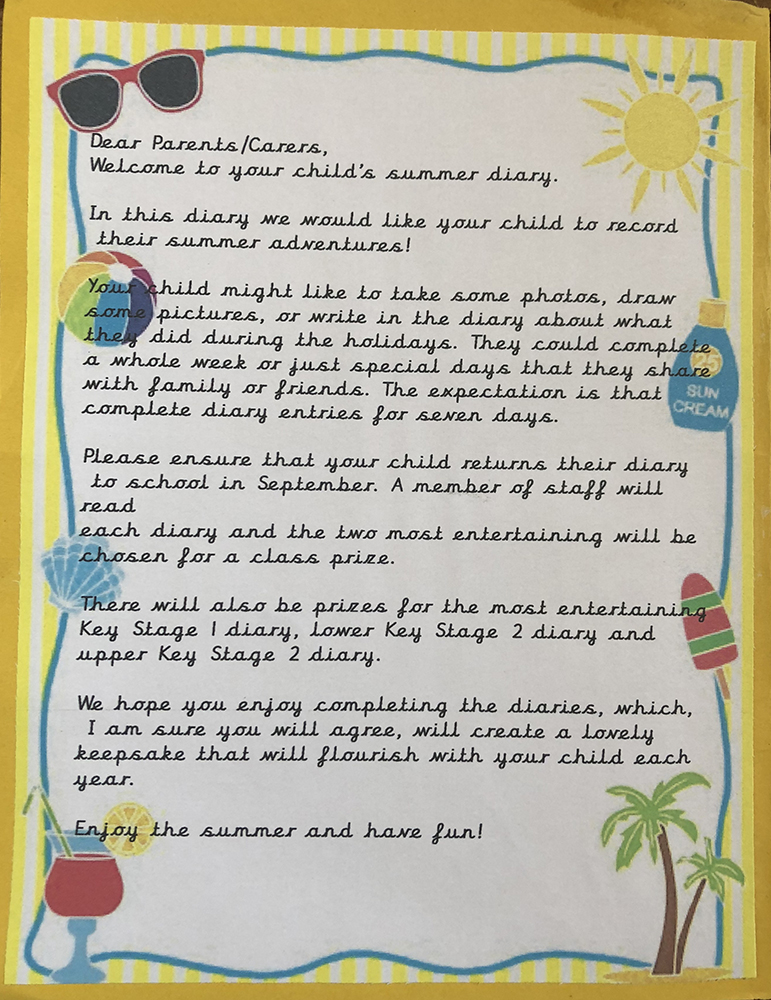 Dear Parents/Carers,
Welcome to your child's summer diary.
In this diary we would like your child to record
their summer adventures!
Your child might like to take some photos, draw
some pictures, or write in the diary about what
they did during the holidays. They could complete
a whole week or just special days that they share
with family or friends. The expectation is that
complete diary entries for seven days.
Please ensure that your child returns their diary
to school in September. A member of staff will
read
each diary and the two most entertaining will be
chosen for a class prize.
There will also be prizes for the most entertaining
Key Stage 1 diary, lower Key Stage 2 diary and
upper Key Stage 2 diary.
We hope you enjoy completing the diaries, which,
I am sure you will agree, will create a lovely
keepsake that will flourish with your child each
year.
Enjoy the summer and have fun!
25
SUN
CREAM